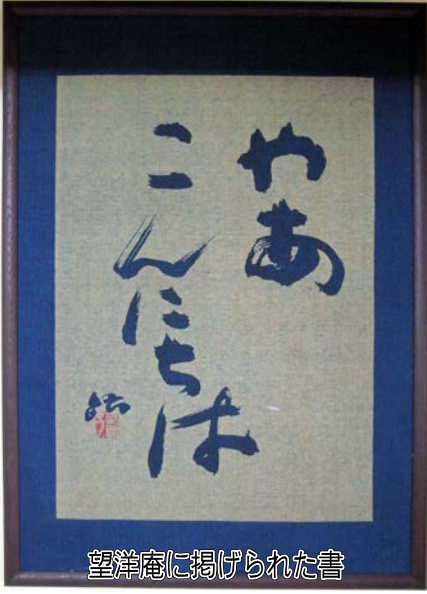 やあ
こんにちは
望洋庵に掲げられた書